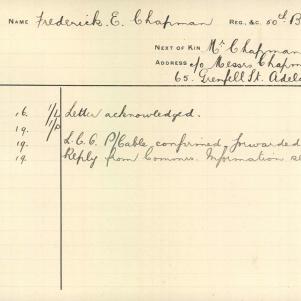 NAME Frederick. E. Chapman REG., &C. 50th B
NEXT OF KIN Mr Chapman
ADDRESS c/o Messrs Chapm
65. Grenfell St. Adela
16. 1/L Letter acknowledged.
19. 1/P
19. L.C.C. P/Cable confirmed, forwarded
19. Reply from Commrs. Information re